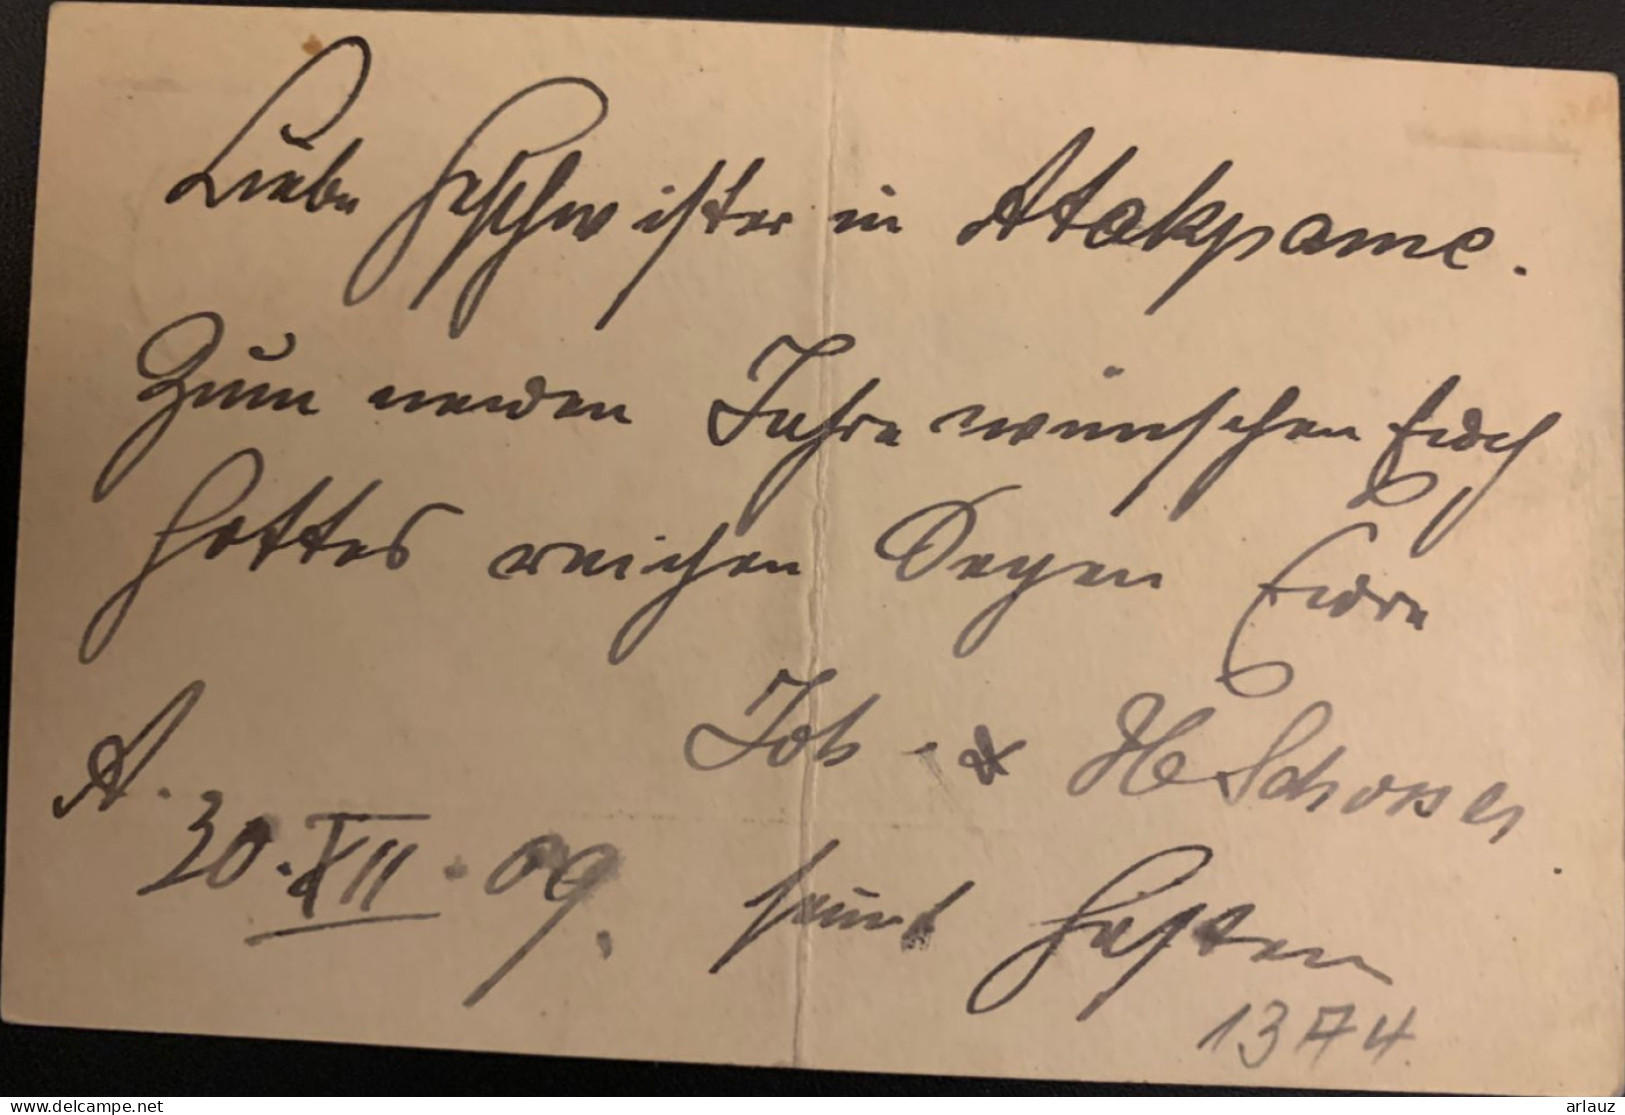 Liebe Geschwister in Atakpame.
Zum neuen Jahre wünschen Euch
Gottes reichen Segen Eure
Joh. & H Schosser
A.
30.XII.09. samt Gästen
1374
www.delcampe.net
arlauz